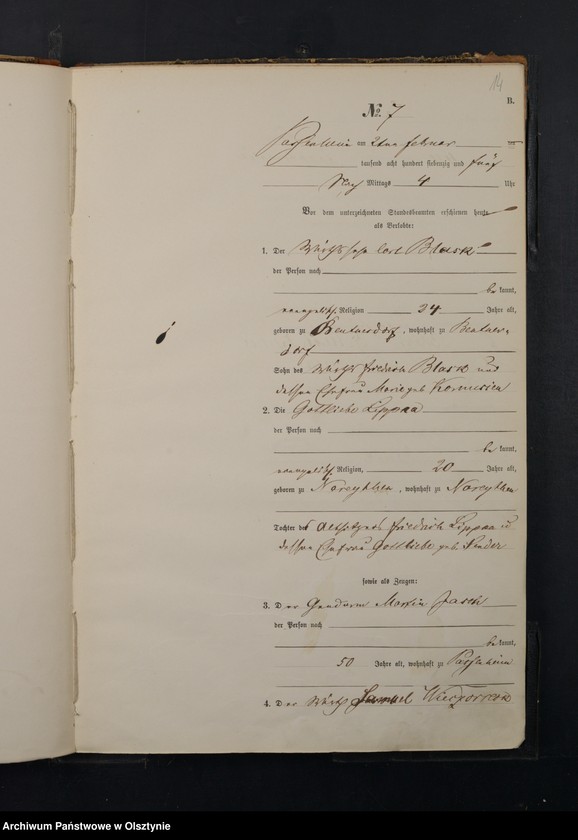 14
B.
No. 7
Passenheim am 2ten Februar
tausend acht hundert siebenzig und fünf
Nach Mittags 4 Uhr
Vor dem unterzeichneten Standesbeamten erschienen heute
als Verlobte:
1. Der Wirthssohn Carl Blask
der Person nach
be kannt,
evangelisch. Religion 24 Jahre alt,
geboren zu , wohnhaft zu
dorf
Sohn des Wirths Friedrich Blask und
dessen Ehefrau Marie geb.
2. Die Gottliebe Lippaa
der Person nach
be kannt,
evangelisch. Religion, 20 Jahre alt,
geboren zu Narcythen, wohnhaft zu Narcythen
Tochter des Altsitzers Friedrich Lippaa u
dessen Ehefrau Gottliebe geb.
sowie als Zeugen:
3. Der Gendarm Martin Jasch
der Person nach
be kannt,
50 Jahre alt, wohnhaft zu Passenheim
4. Der Wirth Samuel
Archiwum Państwowe w Olsztynie